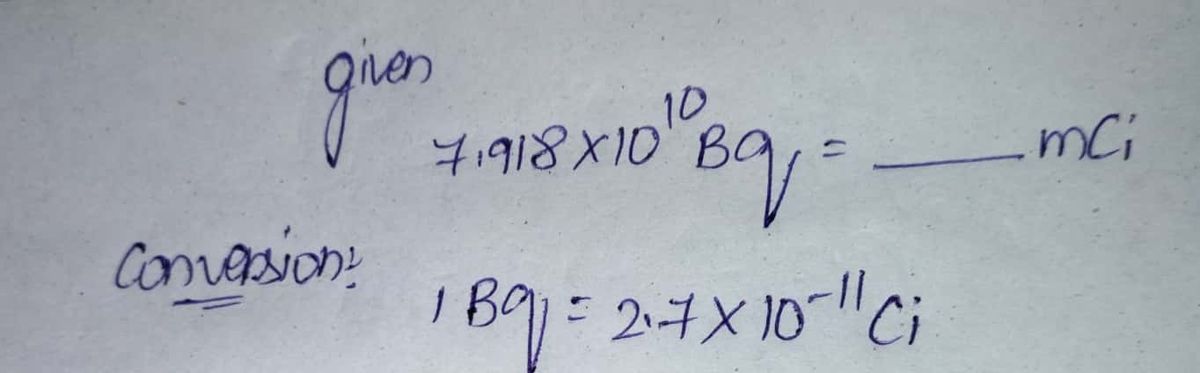 given
7.918 x 10¹⁰ Bq = ____ mCi
Conversion:
1 Bq = 2.7 x 10⁻¹¹ Ci